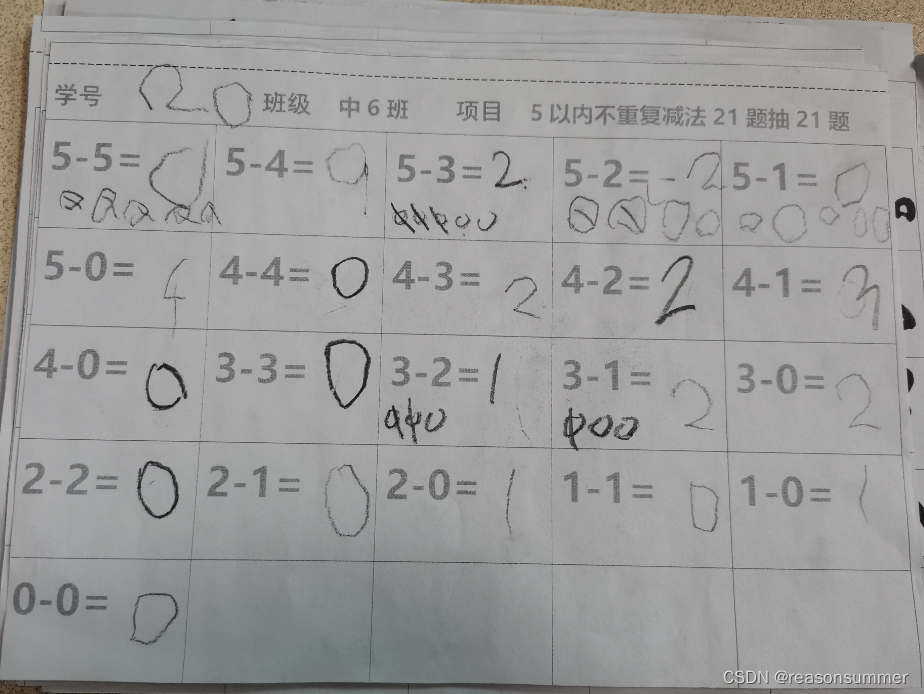 学号 20 班级 中6班 项目 5以内不重复减法21题抽21题
5-5=0 5-4=9 5-3=2 5-2=-2 5-1=0
5-0=4 4-4=0 4-3=2 4-2=2 4-1=3
4-0=0 3-3=0 3-2=1 3-1=2 3-0=2
2-2=0 2-1=0 2-0=1 1-1=0 1-0=1
0-0=0
CSDN @reasonsummer